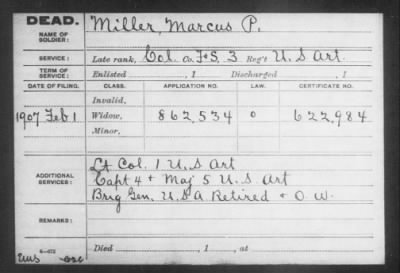 DEAD.
NAME OF SOLDIER: Miller, Marcus P.
SERVICE: Late rank, Col. Co. F&S. 3 Reg't U.S. Art.
TERM OF SERVICE: Enlisted , 1 Discharged , 1
DATE OF FILING. CLASS. APPLICATION NO. LAW. CERTIFICATE NO.
Invalid,
1907 Feb 1 Widow, 862,534 0 622,984
Minor,
ADDITIONAL SERVICES: Lt Col. 1 U.S Art
Capt 4 + Maj 5 U.S Art
Brig Gen. U.S.A Retired + O W.
REMARKS:
Died , 1 , at